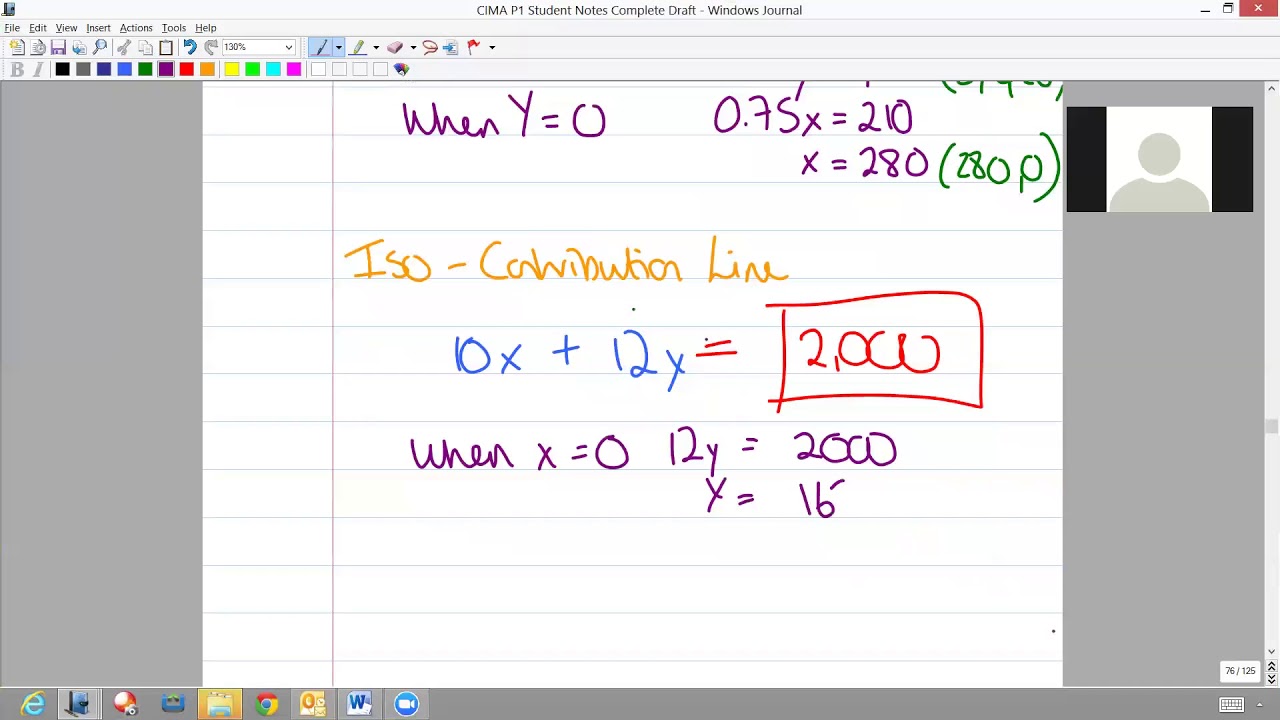 CIMA P1 Student Notes Complete Draft - Windows Journal
File Edit View Insert Actions Tools Help
130%
B I
When Y = 0 0.75x = 210
x = 280 (280,0)
Iso - Contribution Line
10x + 12y = 2,000
When x = 0 12y = 2000
Y = 16
76 / 125